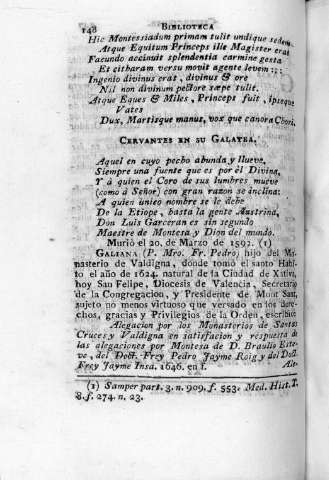 148 BIBLIOTECA
Hic Montessiadum primam tulit undique sedem,
Atque Equitum Princeps ille Magister erat
Facundo accinuit splendentia carmine gesta
Et citharam versu movit agente levem :::
Ingenio divinus erat, divinus & ore
Nil non divinum pectore sæpe tulit.
Atque Eques & Miles, Princeps fuit, ipseque
Vates
Dux, Martisque manus, vox que canora Chori.
CERVANTES EN SU GALATEA.
Aquel en cuyo pecho abunda y llueve,
Siempre una fuente que es por él Divina,
Y á quien el Coro de sus lumbres mueve
(como á Señor) con gran razon se inclina:
A quien unico nombre se le debe
De la Etiope, hasta la gente Austrina,
Don Luis Garceran es sin segundo
Maestre de Montesa y Dion del mundo.
Murió el 20. de Marzo de 1592. (1)
GALIANA (P. Mro. Fr. Pedro) hijo del Mo-
nasterio de Valdigna, donde tomó el santo Habi-
to el año de 1624. natural de la Ciudad de Xativa,
hoy San Felipe, Diocesis de Valencia, Secretario
de la Congregacion, y Presidente de Munt Sant,
sujeto no menos virtuoso que versado en los dere-
chos, gracias y Privilegios de la Orden, escribió:
Alegacion por los Monasterios de Santas
Cruces y Valdigna en satisfacion y respuesta de
las alegaciones por Montesa de D. Braulio Este-
ve, del Doct. Frey Pedro Jayme Roig y del Doct.
Frey Jayme Insa. 1646. en f. Ale-
(1) Samper part. 3. n. 909. f. 553. Med. Hist. T.
8. f. 274. n. 23.